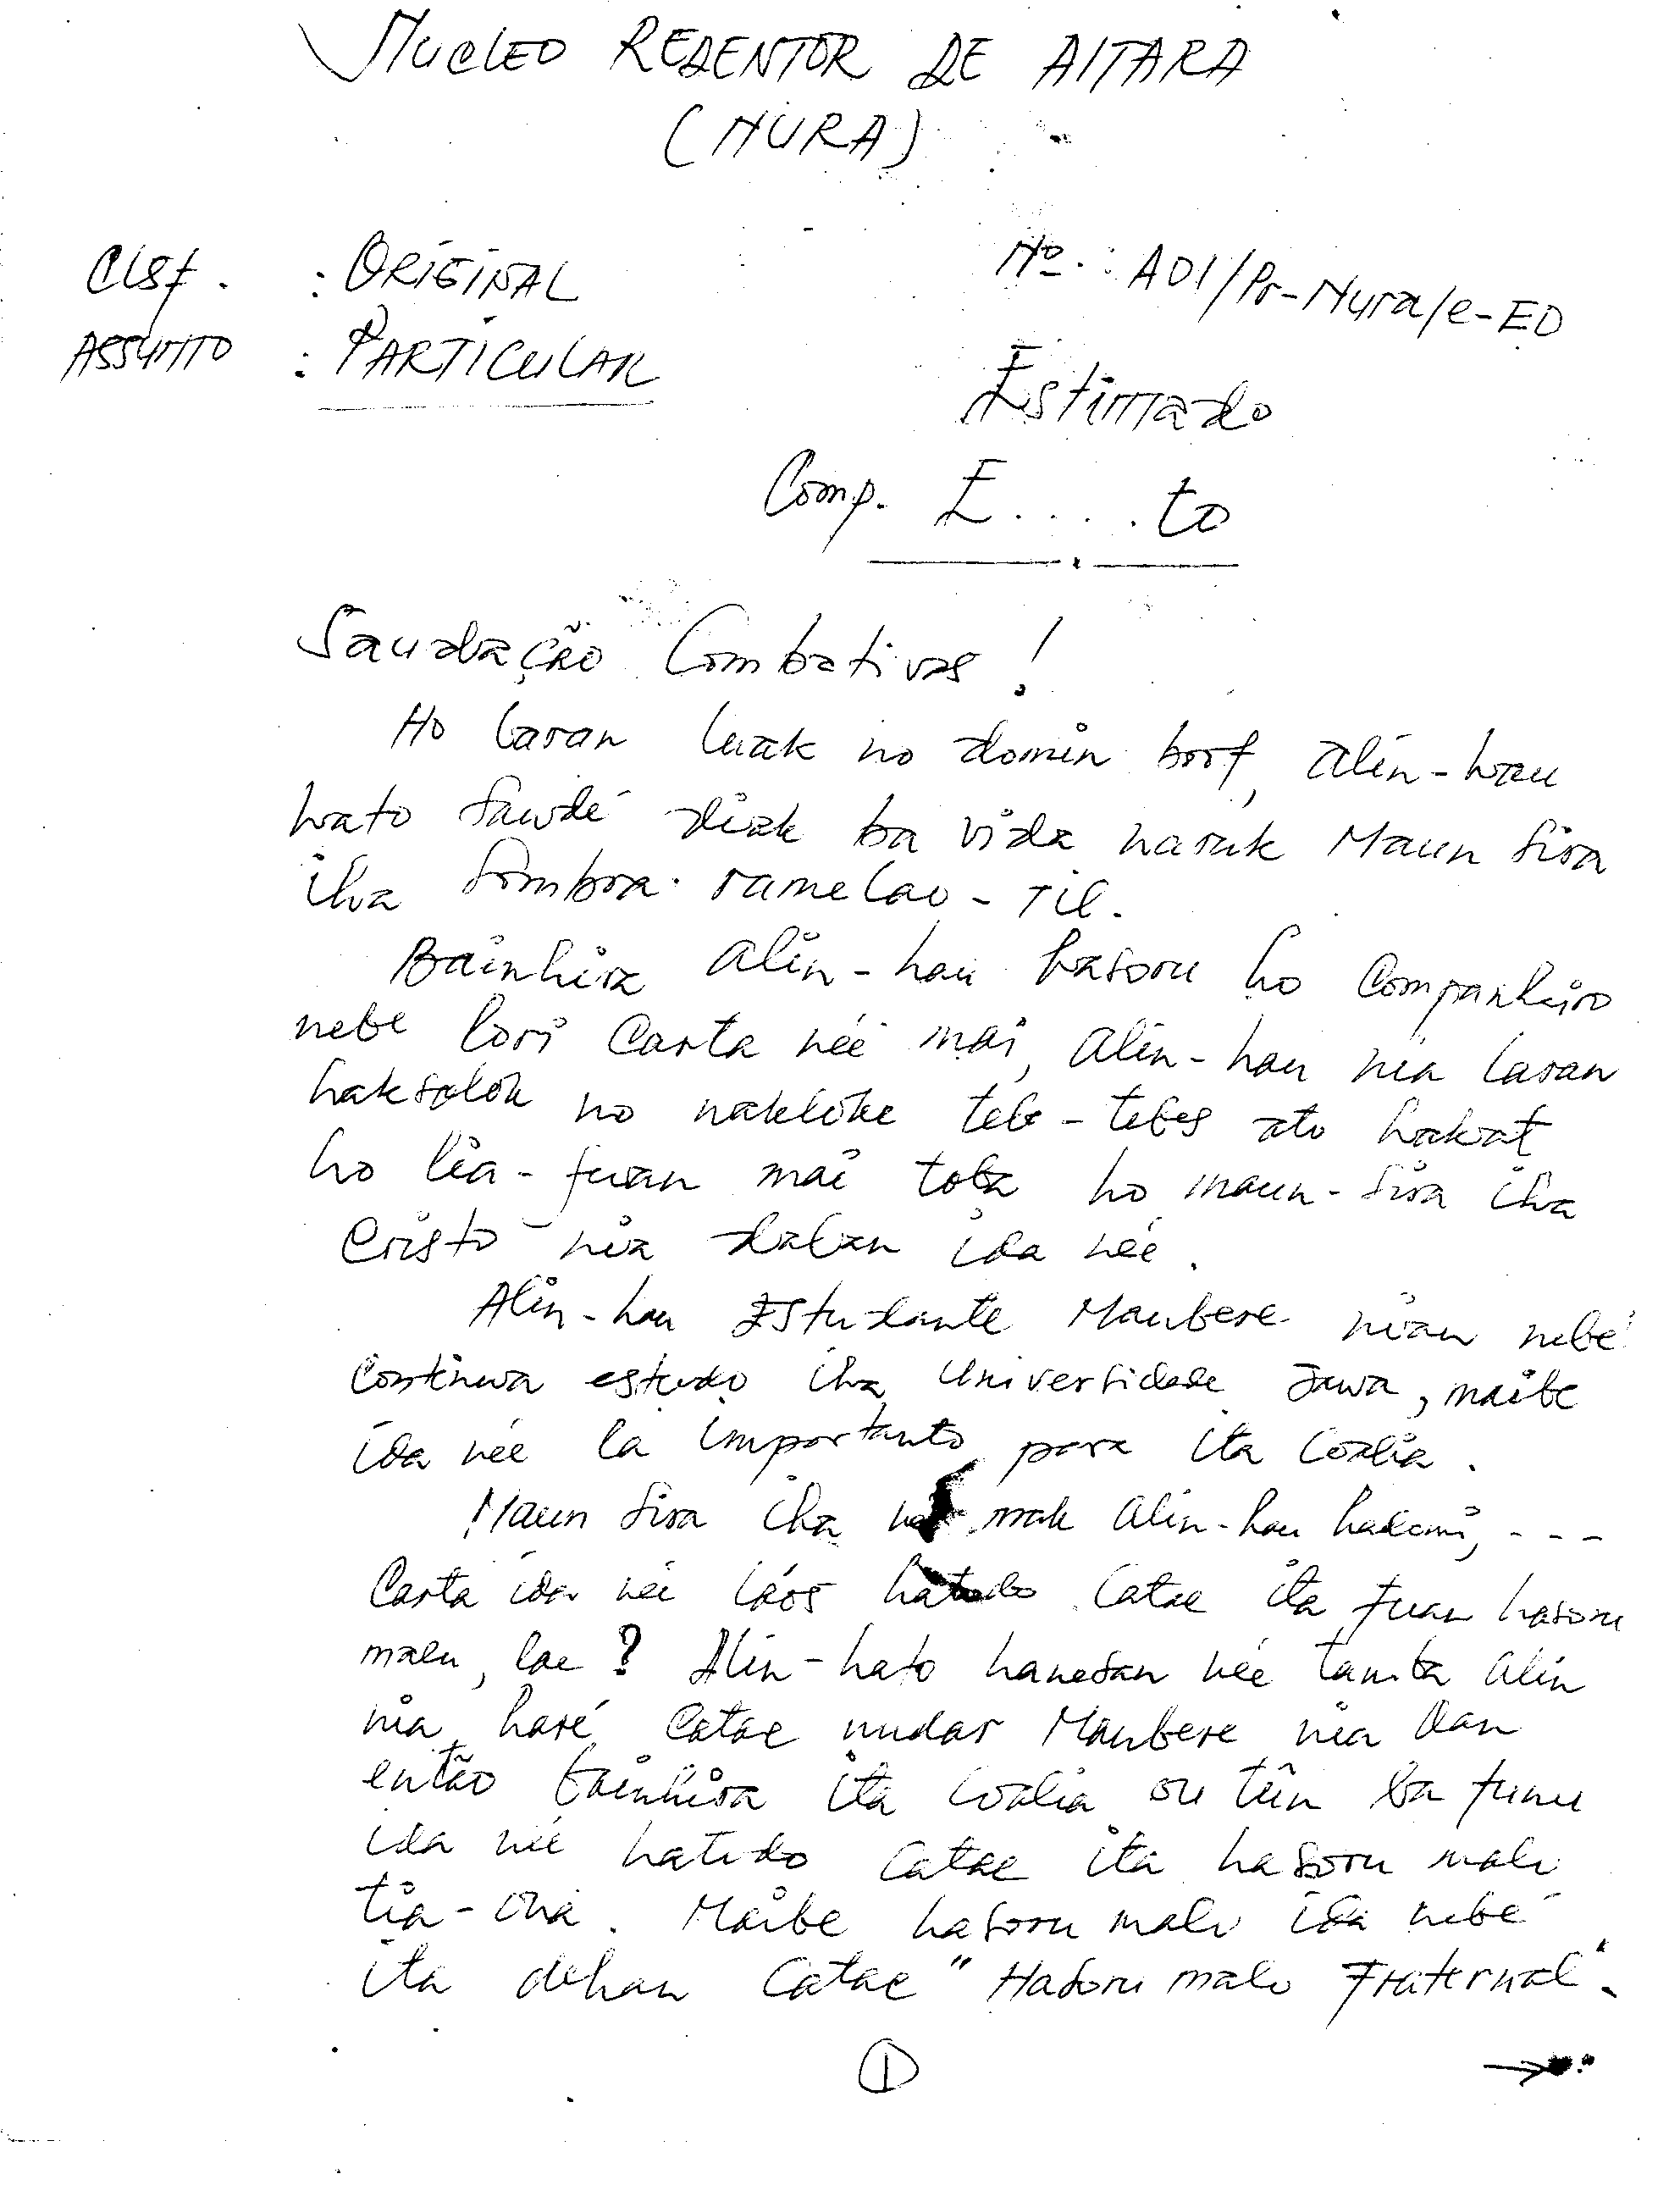 NUCLEO REDENTOR DE AITARA
(NURA)
Clsf. : ORIGINAL
Nº.: A01/Pr-Nura/e-ED
ASSUNTO : PARTICULAR
Estimado
Comp. E.....to
Saudação Combativas!
Ho laran luak no domin boot, alin-hau
hato saudé diak ba vida naruk Maun sira
iha sombra ramelao-TIL.
Bainhira alin-hau hasoru ho Companheiro
nebe lori Carta néé mai, alin-hau nia laran
haksolok no nakloke tebe-tebes ato hakat
ho lia-fuan mai toba ho maun-sira iha
Cristo nia dalan ida néé.
Alin-hau Estudante Maubere nian nebé
Continua estudo iha Universidade Jawa, maibe
ida néé la importante para ita Coalia.
Maun sira iha mak alin-hau hadomi, ---
Carta ida néé láos hatudo Catae ita fuan hasoru
malu, lae? Alin-hato hanesan néé tamba alin
nia haré Catae nudar Maubere nia Oan
então bainhira ita Coalia ou tùn ba funu
ida néé hatudo Catae ita hasoru malu
tia-ona. Maibe hasoru malu ida nebé
ita dehan Catae "Hasoru malo Fraternal".
1